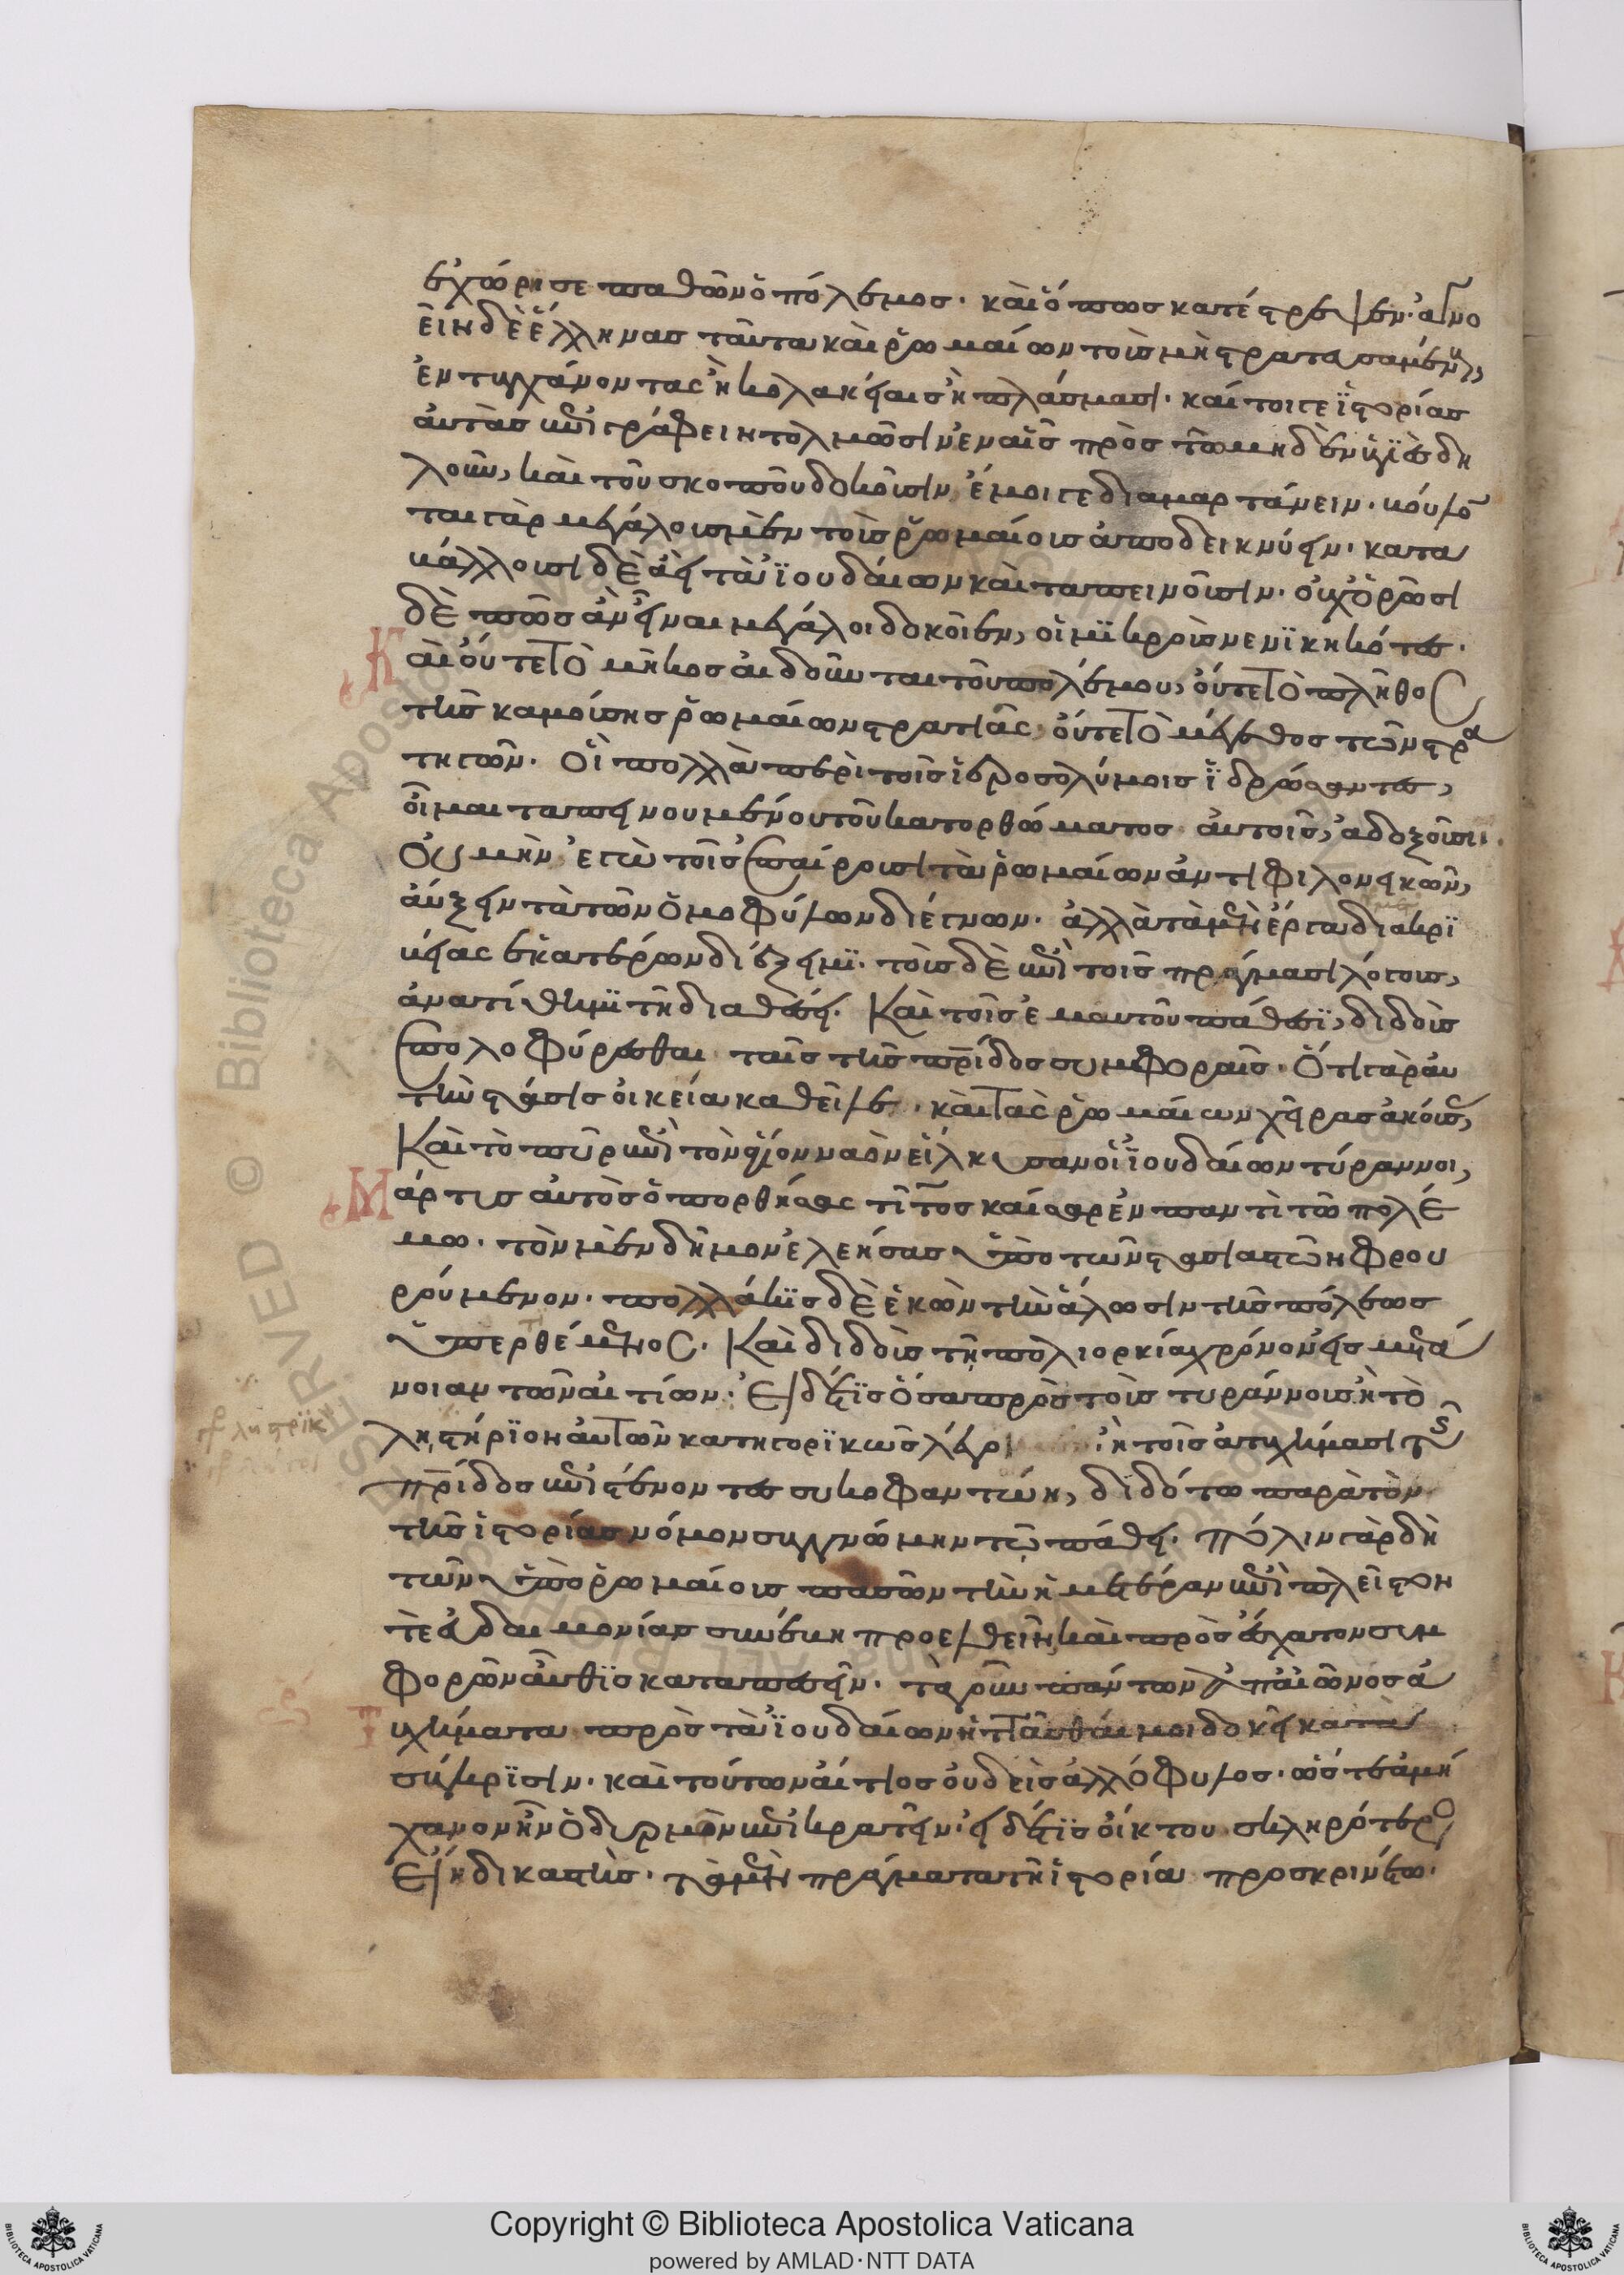 ἐχώρησε παθῶν ὁ πόλεμος. καὶ ὅπως κατέστρεψεν. ἀγνο
εῖν δὲ ἕλληνας ταῦτα καὶ ῥωμαίων τοὺς μὴ στρατευσαμένους,
ἐντυγχάνοντας ἢ κολακείαις ἢ πλάσμασι. καίτοιγε ἱστορίας
αὐτὰς ἐπιγράφειν τολμῶσιν ἐν αἷς πρὸς τῶ μηδὲν ὑγιὲς δη
λοῦν, καὶ τοῦ σκοποῦ δοκοῦσιν ἔμοιγε διαμαρτάνειν. βούλον
ται γὰρ μεγάλους μὲν τοὺς ῥωμαίους ἀποδεικνύειν. κατα
βάλλουσι δὲ ἀεὶ τὰ ἰουδαίων καὶ ταπεινοῦσιν. οὐχ ὁρῶσι
δὲ πῶς ἂν εἶναι μεγάλοι δοκοῖεν, οἱ μικροὺς νενικηκότες.
Καὶ οὔτε τὸ μῆκος αἰδοῦνται τοῦ πολέμου, οὔτε τὸ πλῆθος
τῆς καμούσης ῥωμαίων στρατιᾶς, οὔτε τὸ μέγεθος τῶν στρα
τηγῶν. οἳ πολλὰ περὶ τοῖς ἱεροσολύμοις ἱδρώσαντες,
οἶμαι ταπεινουμένου τοῦ κατορθώματος αὐτοῖς, ἀδοξοῦσι.
Οὐ μὴν ἐγὼ τοῖς ἐπαίρουσι τὰ ῥωμαίων ἀντιφιλονεικῶν,
αὔξειν τὰ τῶν ὁμοφύλων διέγνων. ἀλλὰ τὰ μὲν ἔργα διακρι
βείας ἑκατέρων διέξειμι. τοὺς δὲ ἐπὶ τοῖς πράγμασι λόγους,
ἀνατίθημι τῆ διαθέσει. Καὶ τοῖς ἐμαυτοῦ πάθεσι, διδοὺς
ἐπολοφύρεσθαι ταῖς τῆς πρίδος συμφοραῖς. Ὅτι γὰρ αὐ
τὴν στάσις οἰκεία καθεῖλε. καὶ τὰς ῥωμαίων χεῖρας ἀκούσας,
Καὶ τὸ πῦρ ἐπὶ τὸν ἅγιον ναὸν εἵλκυσαν οἱ ἰουδαίων τύραννοι,
Μάρτυς αὐτὸς ὁ πορθήσας τίτος καῖσαρ ἐν παντὶ τῶ πολέ
μω. τὸν μὲν δῆμον ἐλεήσας ὑπὸ τῶν στασιαστῶν φρου
ρούμενον. πολλάκις δὲ ἑκὼν τὴν ἅλωσιν τῆς πόλεως
ὑπερθέμενος. Καὶ διδοὺς τῆ πολιορκία χρόνον εἰς μετά
νοιαν τῶν αἰτίων. Εἰ δέ τις ὅσα πρὸς τοὺς τυράννους ἢ τὸ
ληστήριον αὐτῶν κατηγορικῶς λέγοι ἢ τοῖς ἀτυχήμασι τῆς
πρίδος ἐπιστένοντες συκοφαντώη, διδότω παρὰ τὸν
τῆς ἱστορίας νόμον συγγνώμην τῶ πάθει. πόλιν γὰρ δὴ
τῶν ὑπὸ ῥωμαίοις πασῶν τὴν ἡμετέραν ἐπὶ πλεῖστον
τὲ εὐδαιμονίας συνέβη προελθεῖν, καὶ πρὸς ἔσχατον συμ
φορῶν αὖθις καταπεσεῖν. τὰ γοῦν πάντων ἀπαἰῶνος ἀ
τυχήματα πρὸς τὰ ἰουδαίων ἡττᾶσθαί μοι δοκεῖ κατὰ
σύγκρισιν. καὶ τούτων αἴτιος οὐδεὶς ἀλλόφυλος. ὥστε ἀμή
χανον ἦν ὀδυρμῶν ἐπικρατεῖν. εἰ δέ τις οἴκτου σκληρότερος
εἴη δικαστὴς. τὰ μὲν πράγματα τῆ ἱστορία προσκρινέτω.
Copyright © Biblioteca Apostolica Vaticana
powered by AMLAD·NTT DATA